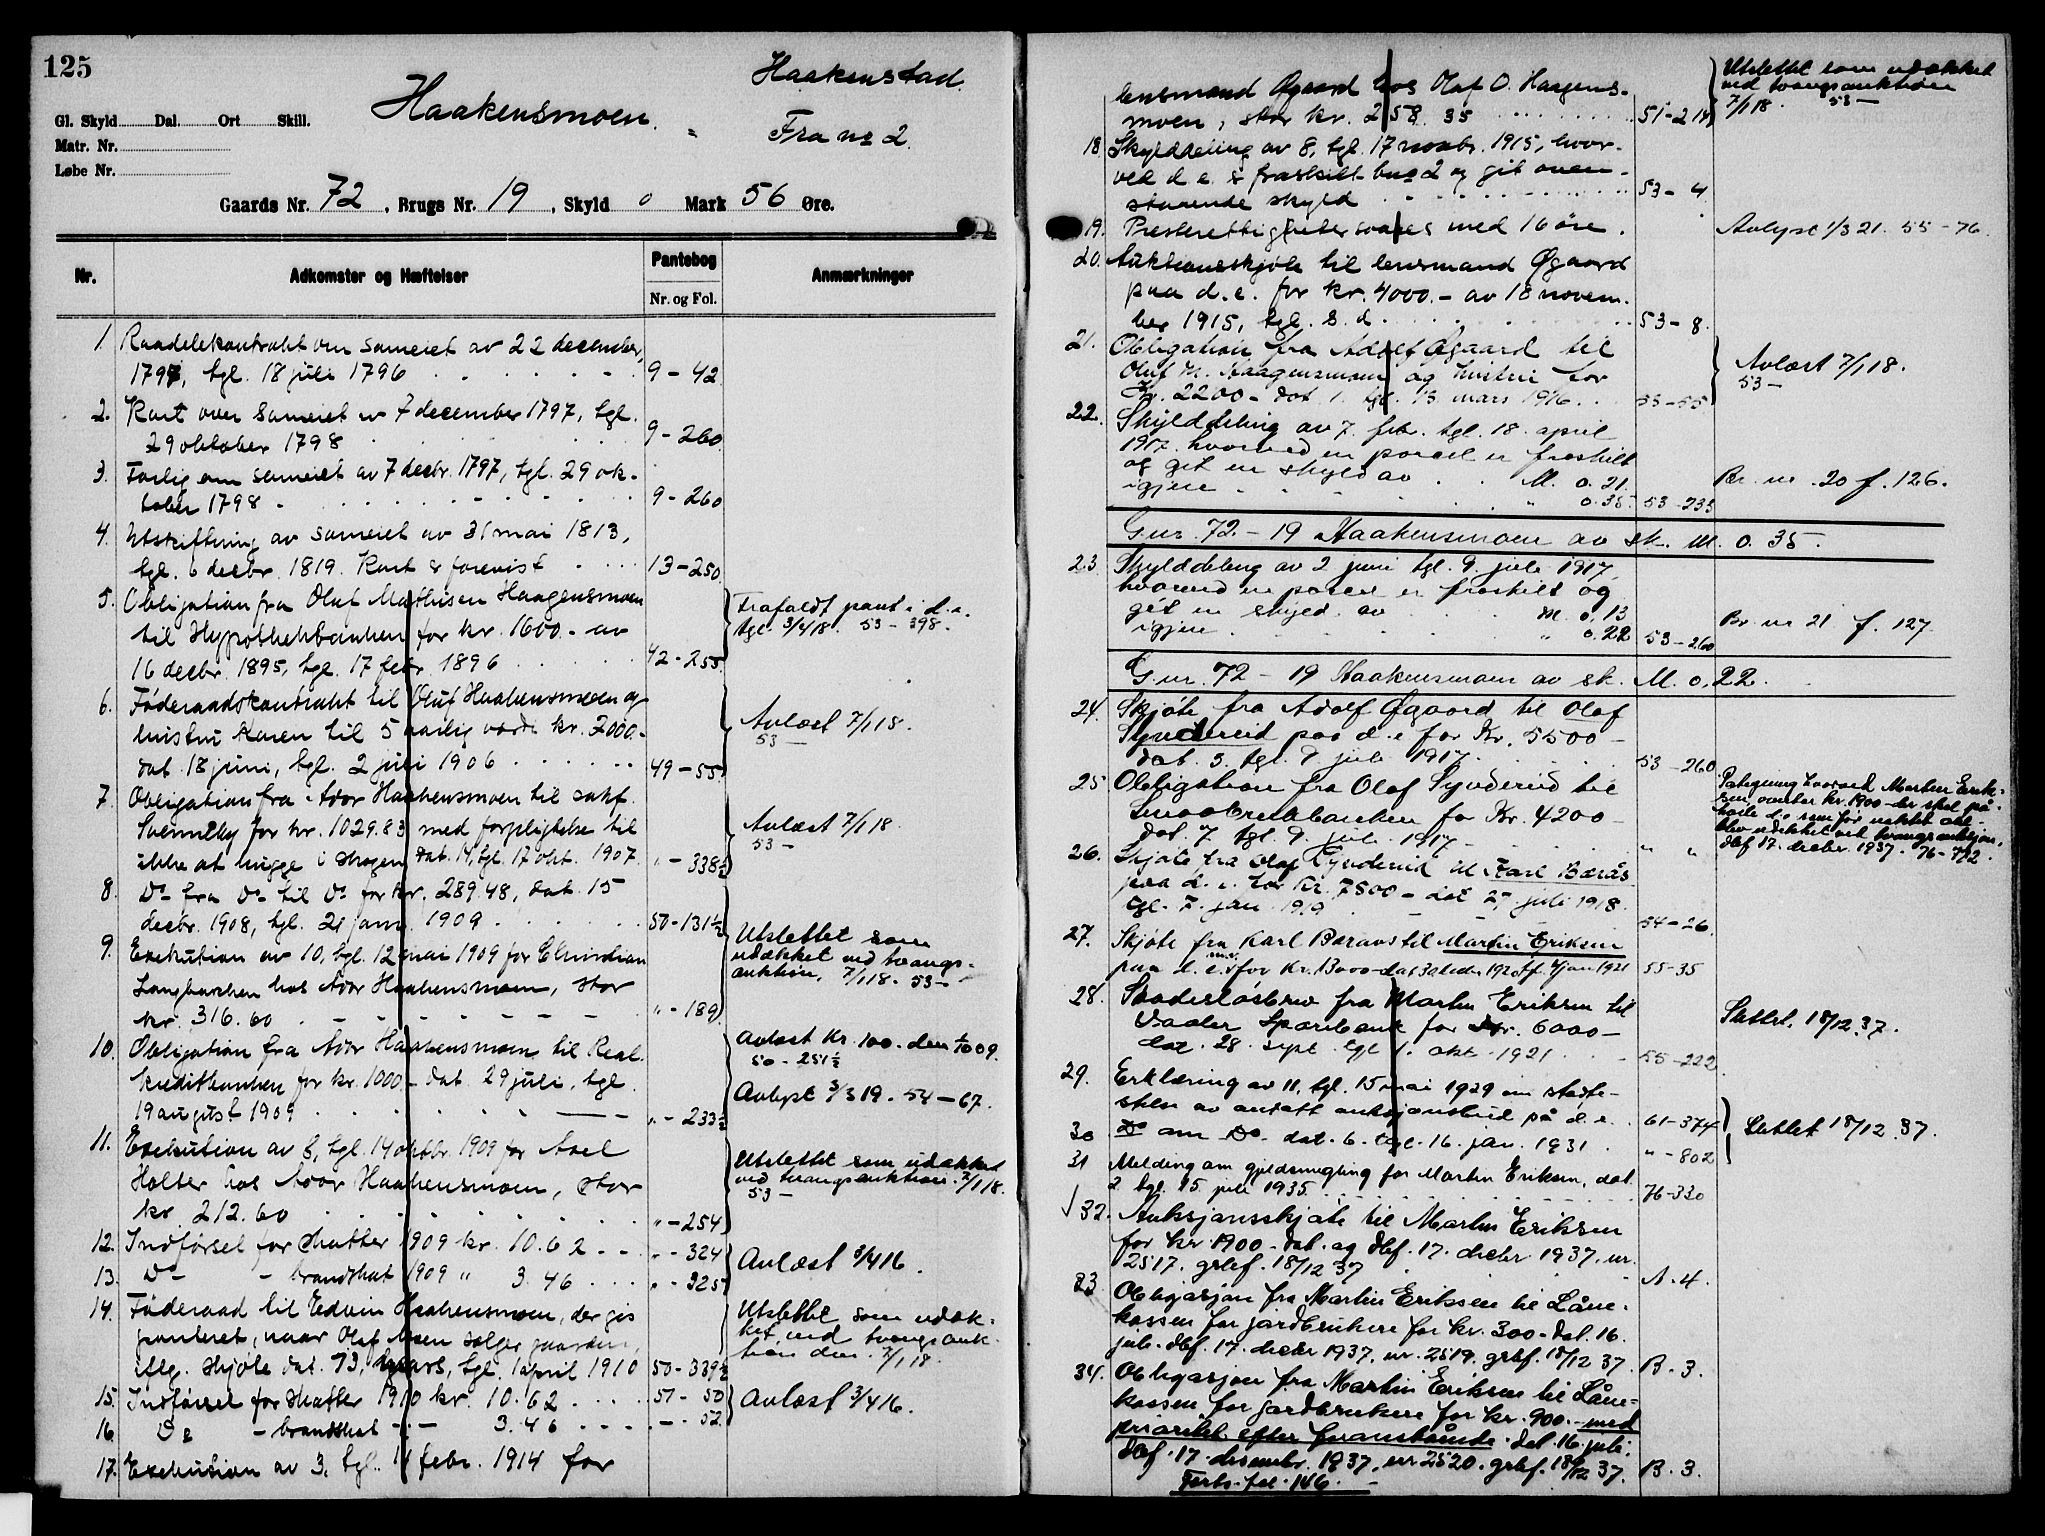 125
Haakensmoen.
Haakenstad.
Fra no 2.
Gl. Skyld Dal. Ort Skill.
Matr. Nr.
Løbe Nr.
Gaards Nr. 72, Brugs Nr. 19, Skyld 0 Mark 56 Øre.
Nr. Adkomster og Hæftelser Pantebog Anmærkninger
Nr. og Fol.
1. Raadelekontrakt om sameiet av 22 december,
1797, tgl. 18 juli 1796 9-42
2. Kart over sameiet av 7 december 1797, tgl.
29 oktober 1798 9-260
3. Forlig om sameiet av 7 decbr. 1797, tgl. 29 ok-
tober 1798 9-260
4. Utskiftning av sameiet av 31 mai 1813,
tgl. 6 decbr. 1819. Kart er forevist 13-250
5. Obligation fra Oluf Mathisen Haagensmoen
til Hypothekbanken for kr. 1600.- av
16 decbr. 1895, tgl. 17 febr. 1896 42-255
Frafaldt pant i d.e.
tgl. 3/4 18. 53-398.
6. Føderaadskontrakt til Oluf Haakensmoen og
hustru Karen til 5 aarlig værdi kr. 2000.-
dat. 18 juni, tgl. 2 juli 1906 49-55
Avlæst 7/1 18.
53-
7. Obligation fra Ador Haakensmoen til sakf.
Svenneby for kr. 1029.83 med forpligtelse til
ikke at hugge i skogen dat. 14, tgl. 17 okt. 1907 "-338½
Avlæst 7/1 18.
53-
8. Do fra Do til Do for kr. 289.48, dat. 15
decbr. 1908, tgl. 21 jan. 1909 50-131½
9. Exekution av 10, tgl. 12 mai 1909 for
hos Ador Haakensmoen, stor
kr. 316.60 "-189
Utslettet som
udækket ved tvangs-
auktion. 7/1 18. 53-
10. Obligation fra Ador Haakensmoen til Real-
kreditbanken for kr. 1000.- dat. 29 juli, tgl.
19 august 1909 "-233½
Avløst kr. 100. den 09.
50-251½
Avlyst 3/3 19. 54-67.
11. Exekution av 8, tgl. 14 oktbr. 1909 for Axel
Holter hos Ador Haakensmoen, stor
kr. 212.60 "-254
Utslettet som udækket
ved tvangsauktion. 7/1 18.
53-
12. Indførsel for skatter 1909 kr. 10.62 "-324
13. Do - brandskat 1909 " 3.46 "-325
Avlæst 3/4 16.
14. Føderaad til Edvin Haakensmoen, der gis
panteret, naar Olaf Moen sælger gaarden,
iflg. skjøte dat. 13, tgl. 1 april 1910 50-339½
Utslettet som udæk-
ket ved tvangsauk-
tion den 7/1 18.
15. Indførsel for skatter 1910 kr. 10.62 51-50
16. Do - brandskat - - 3.46 -"-52
Avlæst 3/4 16.
17. Exekution av 3, tgl. 11 febr. 1914 for
lensmand Øgaard hos Olaf O. Haagens-
moen, stor kr. 258.35 51-214
Utslettet som udækket
ved tvangsauktion
7/1 18. 53-
18. Skylddeling av 8, tgl. 17 novbr. 1915, hvor-
ved d.e. er fraskilt bno 2 og git oven-
staaende skyld 53-4
19. Presterettigheter svares med 16 øre. Avlyst 1/3 21. 55-76.
20. Auktionsskjøte til lensmand Øgaard
paa d.e. for kr. 4000.- av 18 novem-
ber 1915, tgl. s.d. 53-8.
21. Obligation fra Adolf Øgaard til
Oluf M. Haagensmoen og hustru for
Kr. 2200- dat. 1. tgl. 13. mars 1916 53-55
Avlæst 7/1 18.
53-
22. Skylddeling av 7. febr. tgl. 18. april
1917. hvorved en parcel er fraskilt
og git en skyld av M. 0.21. Br. nr. 20 f. 126.
igjen " 0.35. 53-235
Gnr. 72-19 Haakensmoen av sk. M. 0.35.
23. Skylddeling av 2 juni tgl. 9. juli 1917,
hvorved en parcel er fraskilt og
git en skyld. av M. 0.13 Br. nr 21 f. 127.
igjen " 0.22 53-260
Gnr. 72-19 Haakensmoen av sk. M. 0.22.
24. Skjøte fra Adolf Øgaard til Olaf
Synderud paa d.e for Kr. 5500-
dat. 3. tgl. 9 juli 1917 53-260
25 Obligation fra Olaf Synderud til
Smaabrukbanken for Kr. 4200-
dat. 7. tgl. 9. juli 1917 - " "
Påtegning hvorved Martin Erik-
sen overtar kr. 1900- der skal på-
hvile d.e. som før
blev udekket ved tvangsauksjon.
dbf 17. decbr. 1937. 76-772.
26. Skjøte fra Olaf Synderud til Karl Bæraas
paa d.e. for Kr. 7500- dat 27 juli 1918.
tgl. 7. jan. 1919 54-26.
27. Skjøte fra Karl Bæraas til Martin Eriksen
paa d.e. m.v. for Kr. 13000- dat. 30 decbr 1920 tf. 4 jan 1921 55-35
28. Skadesløsbrev fra Martin Eriksen til
Vaaler Sparebank for Kr. 6000-
dat. 28. sept. tgl 1. okt. 1921 55-222.
Slettet. 18/12 37.
29. Erklæring av 11, tgl. 15 mai 1929 om stadfe-
stelse av antatt auksjonsbud på d.e. 61-374
30 Do om Do. dat. 6. tgl. 16. jan. 1931 "-802
Slettet 18/12 37.
31 Melding om gjeldsmegling for Martin Eriksen, dat.
2. tgl. 15. juli 1935 76-330
32. Auksjonsskjøte til Martin Eriksen
for kr. 1900- dat. og dbf. 17. decbr 1937. nr.
2517. grbf. 18/12 37 A.4.
33 Obligasjon fra Martin Eriksen til Låne-
kassen for jordbrukere for kr. 300- dat. 16.
juli. dbf. 17. decbr 1937. nr. 2519. grbf. 18/12 37. B.3.
34. Obligasjon fra Martin Eriksen til Låne-
kassen for jordbrukere for kr. 900.- med
prioritet efter foranstående. dat. 16. juli.
dbf. 17. desember. 1937. nr 2520. grbf. 18/12 37. B.3.
Forts. fol. 146.-